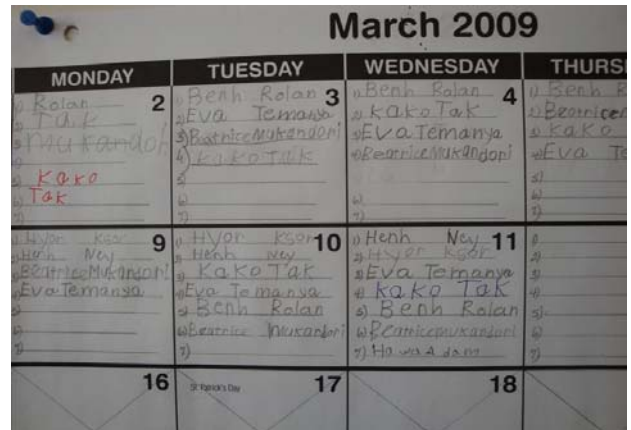 March 2009
MONDAY TUESDAY WEDNESDAY THURS
2
1) Rolan
2) Tak
3) Mukandoli
4)
5) Kako
6) Tak
7)
3
1) Benh Rolan
2) EVa Temanya
3) Beatrice Mukandori
4) Kako Tak
5)
6)
7)
4
1) Benh Rolan
2) KaKo Tak
3) EVa Temanya
4) Beatrice Mukandori
6)
7)
1) Benh R
2) Beatrice
3) Kako
4) EVa Te
5)
6)
7)
9
1) Hyor Ksor
2) Henh Ney
3) Beatrice Mukandori
4) Eva Temanya
5)
6)
7)
10
1) Hyor Ksor
2) Henh Ney
3) Kako Tak
4) Eva Temanya
5) Benh Rolan
6) Beatrice Mukandori
7)
11
1) Henh Ney
2) Hyor Ksor
3) Eva Temanya
4) Kako Tak
5) Benh Rolan
6) Beatrice Mukandori
7) Hawa Adam
1)
2)
3)
4)
5)
6)
7)
16
St. Patrick's Day 17
18